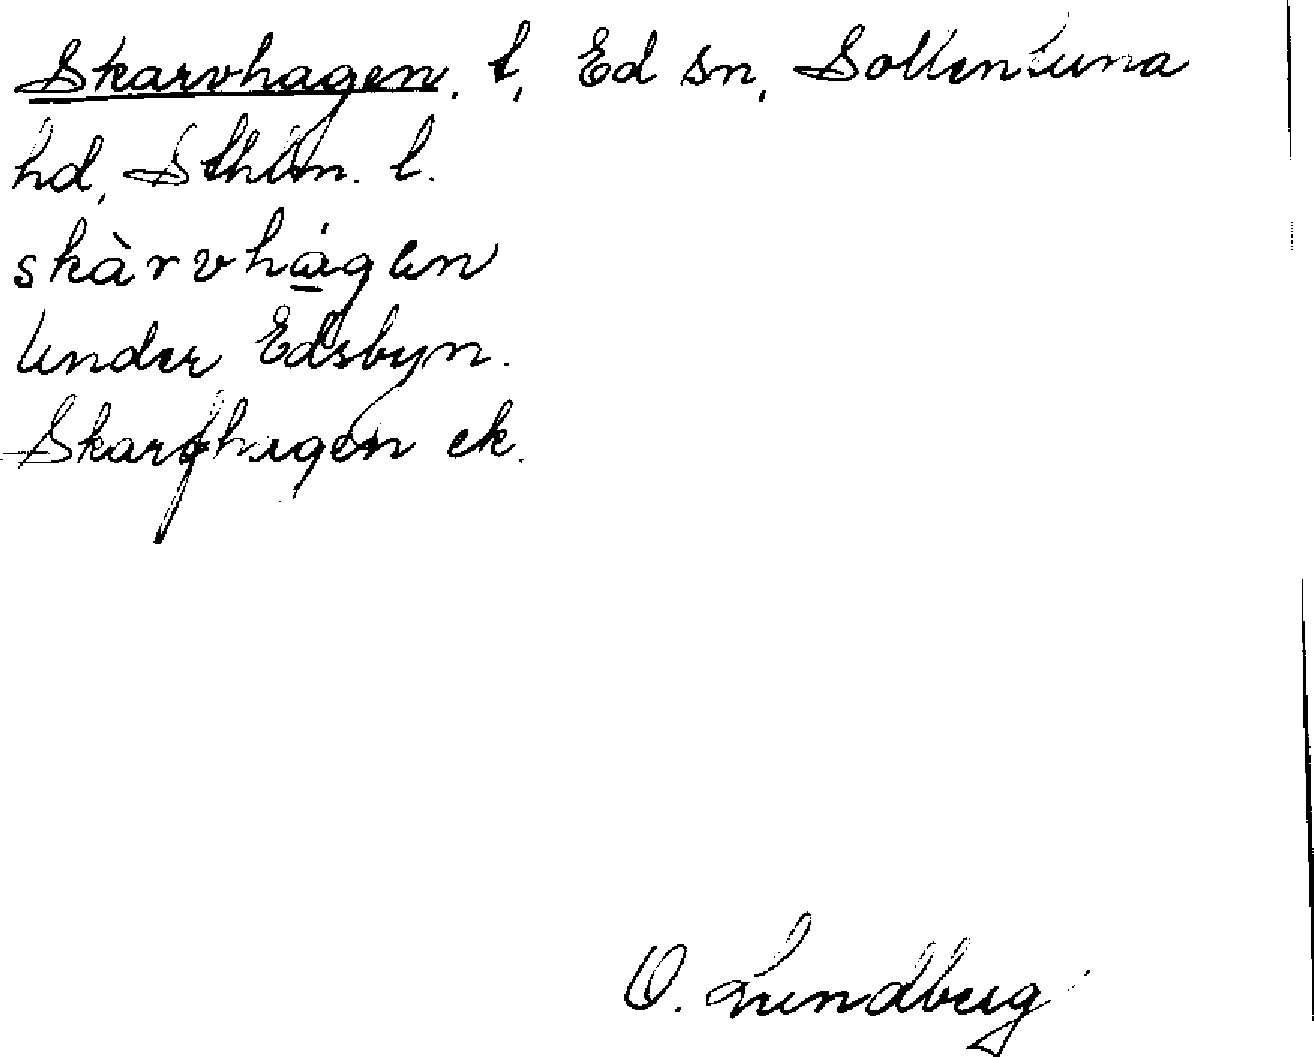 Skarvhagen. t, Ed sn, Sollentuna
hd, Sthlm. l.
skàrvhágen
Under Edsbyn.
Skarfhagen ek.
O. Lundberg